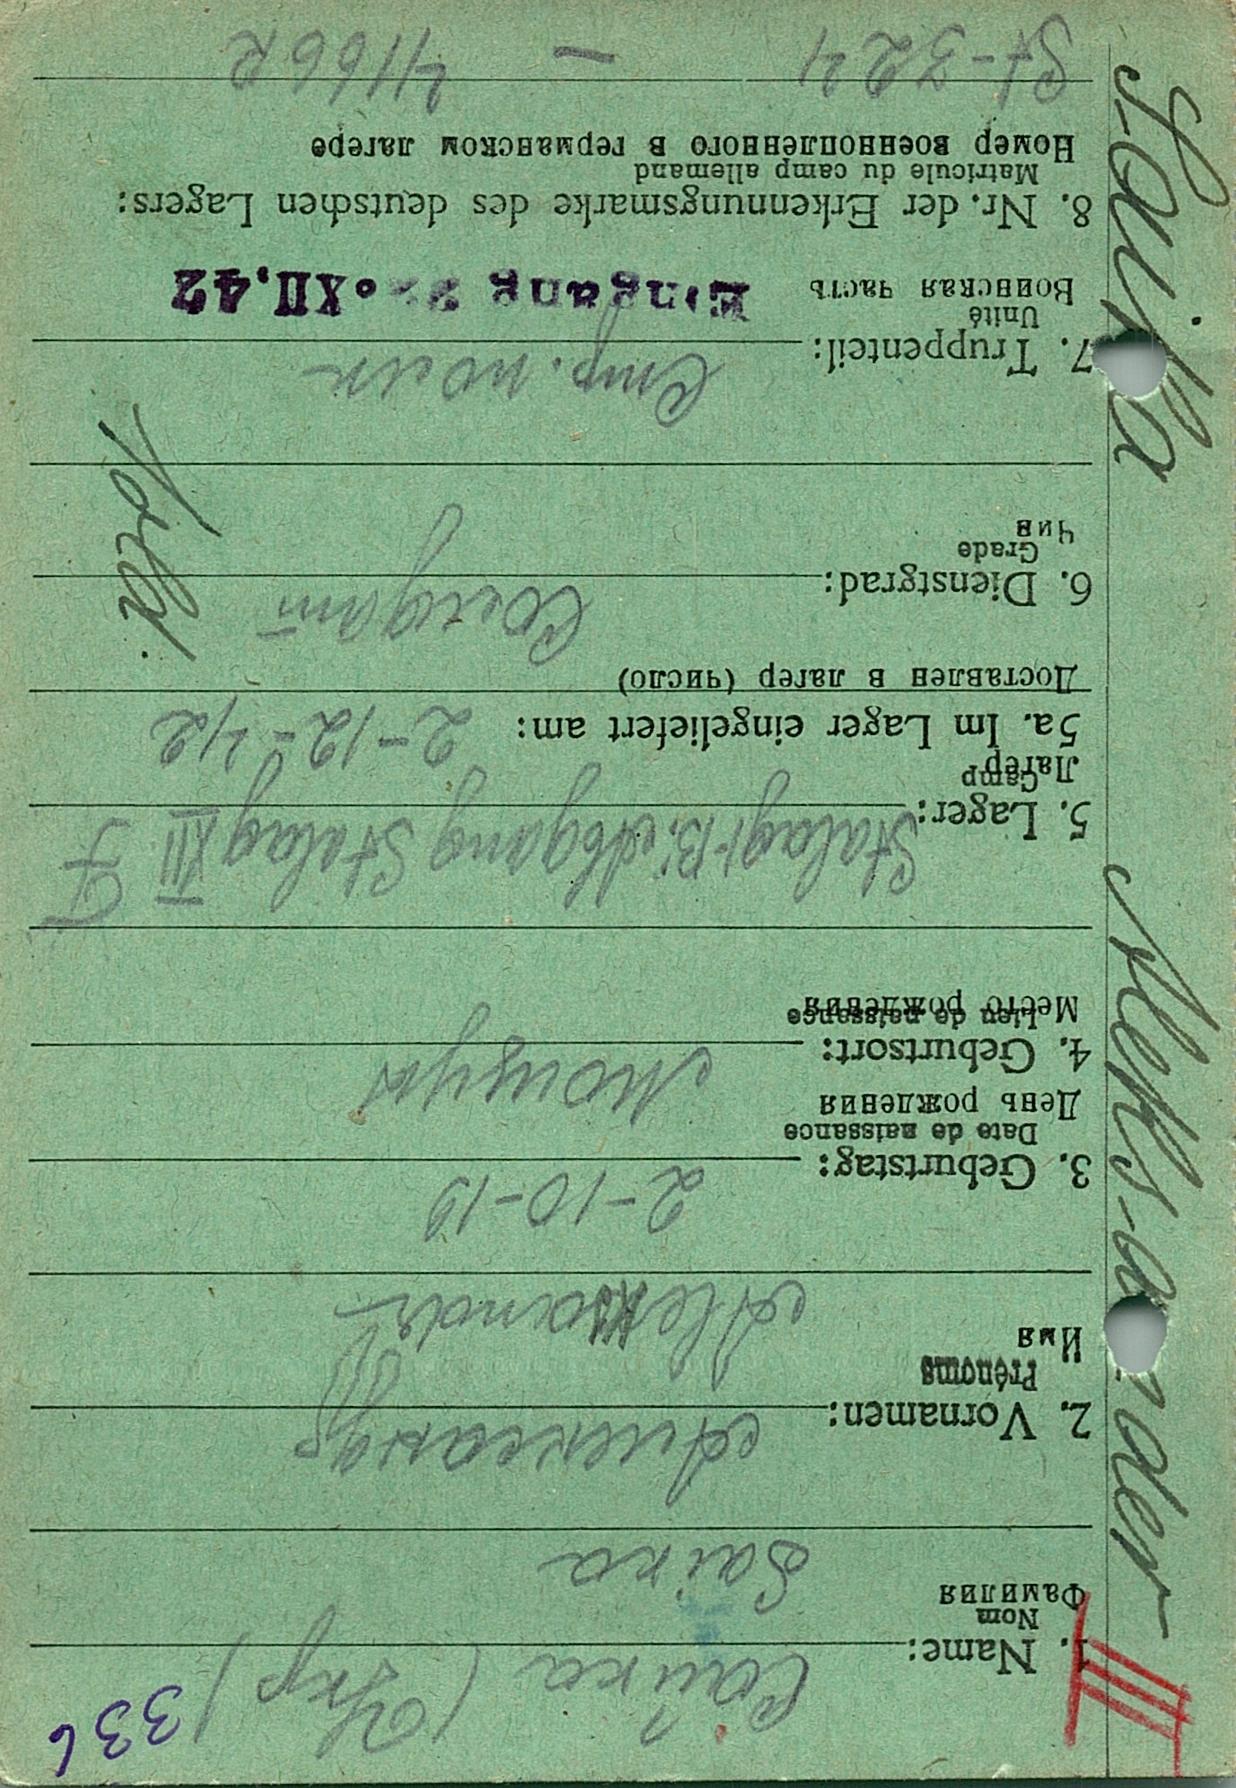 336
Сайка (Укр)
1. Name:
Nom
Фамилия
Saika
Александр
2. Vornamen:
Prénoms
Имя
Aleksandr
2-10-19
3. Geburtstag:
Date de naissance
День рождения
4. Geburtsort:
Lieu de naissance
Место рождения
Stalag I-B. Abgang Stalag XII F
5. Lager:
Camp
Лагерь
5a. Im Lager eingeliefert am: 2-12-42
Доставлен в лагер (число)
Солдат
6. Dienstgrad:
Grade
Чин
Стр. полк
7. Truppenteil:
Unité
Воинская часть
Eingang XII.42
8. Nr. der Erkennungsmarke des deutschen Lagers:
Matricule du camp allemand
Номер военнопленного в германском лагере
St-324 — 41166 R
III
Saika Aleksander